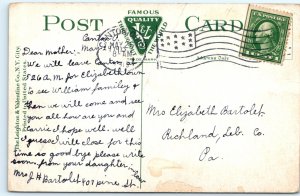 POST CARD
FAMOUS
QUALITY
Address Only
Printed in United States.
Canton
Dear Mother,
We will leave Canton at
8.26 A.M. for Elizabethtown
to see William familiey &
then we will come and see
you all how are you and
Carrie I hope well. well
I guess will close for this
time so good bye please write
soon from your daughter,
Mrs J H Bartolet 707 pine St
Mrs Elizabeth Bartolet
Richland, Leb. Co.
Pa.